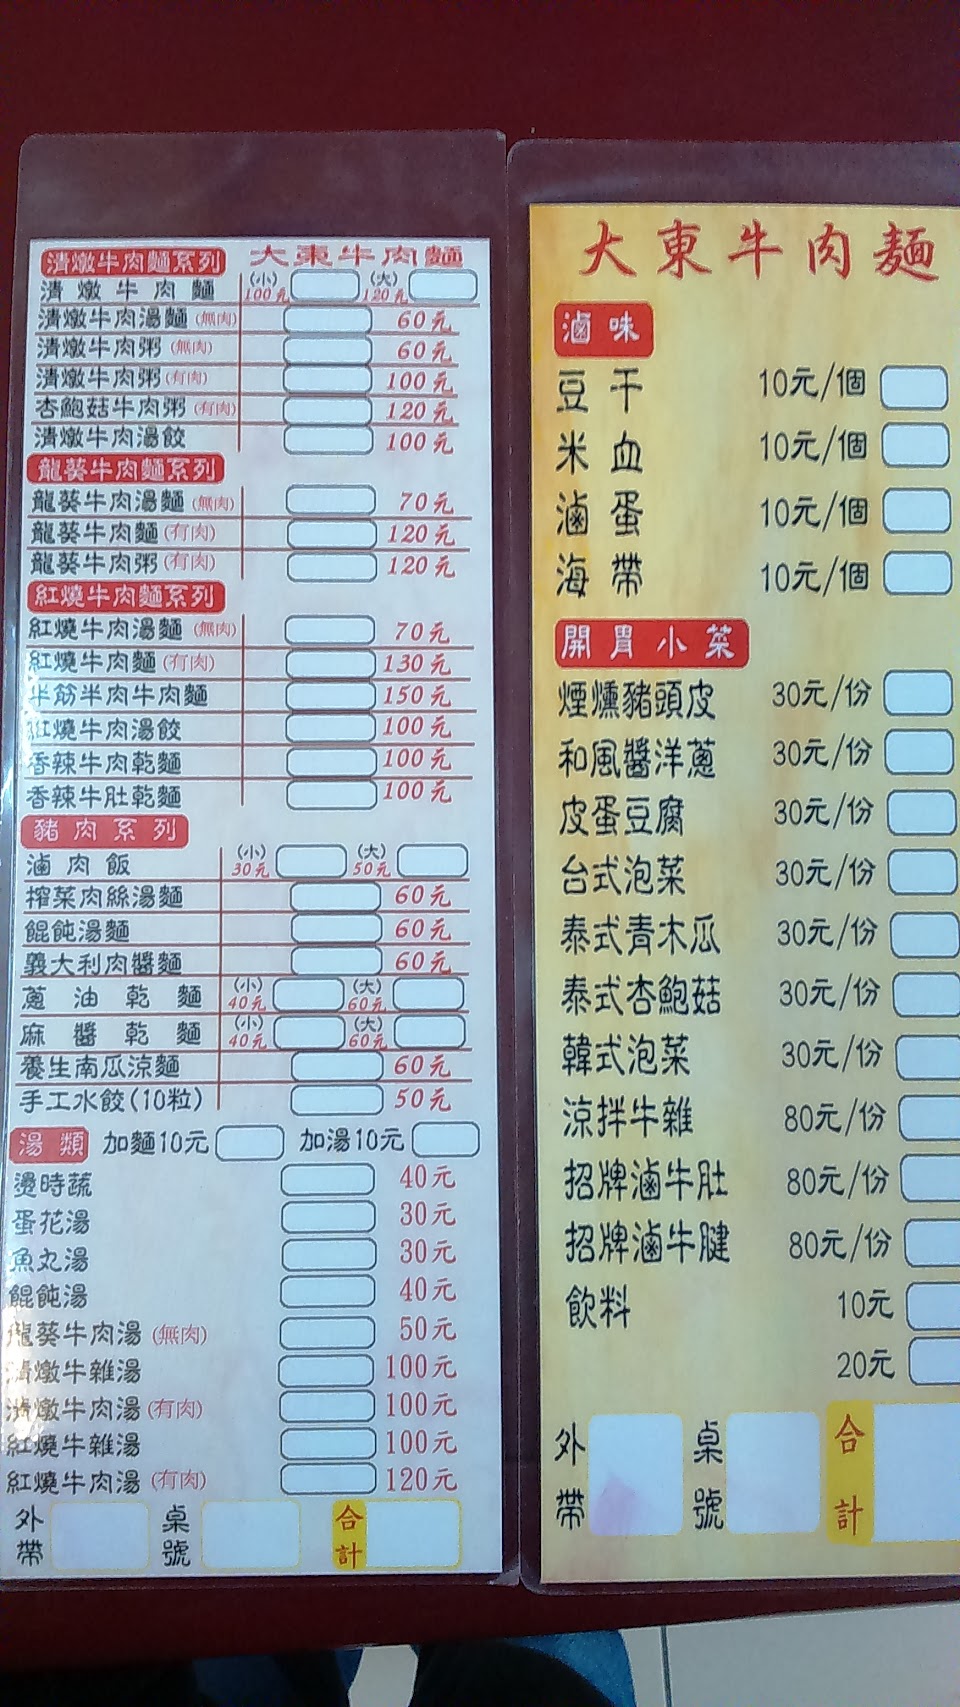 清燉牛肉麵系列 大東牛肉麵
清燉牛肉麵 (小)100元 (大)120元
清燉牛肉湯麵(無肉) 60元
清燉牛肉粥(無肉) 60元
清燉牛肉粥(有肉) 100元
杏鮑菇牛肉粥(有肉) 120元
清燉牛肉湯餃 100元
龍葵牛肉麵系列
龍葵牛肉湯麵(無肉) 70元
龍葵牛肉麵(有肉) 120元
龍葵牛肉粥(有肉) 120元
紅燒牛肉麵系列
紅燒牛肉湯麵(無肉) 70元
紅燒牛肉麵(有肉) 130元
半筋半肉牛肉麵 150元
紅燒牛肉湯餃 100元
香辣牛肉乾麵 100元
香辣牛肚乾麵 100元
豬肉系列
滷肉飯 (小)30元 (大)50元
榨菜肉絲湯麵 60元
餛飩湯麵 60元
義大利肉醬麵 60元
蔥油乾麵 (小)40元 (大)60元
麻醬乾麵 (小)40元 (大)60元
養生南瓜涼麵 60元
手工水餃(10粒) 50元
湯類 加麵10元 加湯10元
燙時蔬 40元
蛋花湯 30元
魚丸湯 30元
餛飩湯 40元
龍葵牛肉湯(無肉) 50元
清燉牛雜湯 100元
清燉牛肉湯(有肉) 100元
紅燒牛雜湯 100元
紅燒牛肉湯(有肉) 120元
外帶 桌號 合計
大東牛肉麵
滷味
豆干 10元/個
米血 10元/個
滷蛋 10元/個
海帶 10元/個
開胃小菜
煙燻豬頭皮 30元/份
和風醬洋蔥 30元/份
皮蛋豆腐 30元/份
台式泡菜 30元/份
泰式青木瓜 30元/份
泰式杏鮑菇 30元/份
韓式泡菜 30元/份
涼拌牛雜 80元/份
招牌滷牛肚 80元/份
招牌滷牛腱 80元/份
飲料 10元
20元
外帶 桌號 合計